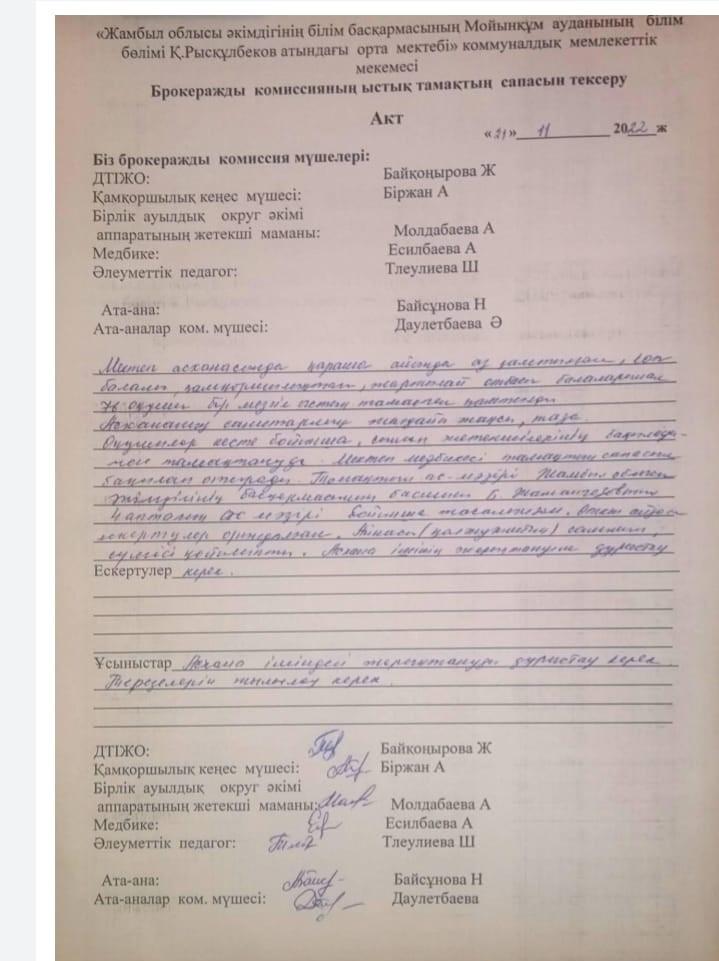 «Жамбыл облысы әкімдігінің білім басқармасының Мойынқұм ауданының білім
бөлімі Қ.Рысқұлбеков атындағы орта мектебі» коммуналдық мемлекеттік
мекемесі
Брокеражды комиссияның ыстық тамақтың сапасын тексеру
Акт
«21» 11 2022 ж
Біз брокеражды комиссия мүшелері:
ДТІЖО: Байқоңырова Ж
Қамқоршылық кеңес мүшесі: Біржан А
Бірлік ауылдық округ әкімі
аппаратының жетекші маманы: Молдабаева А
Медбике: Есилбаева А
Әлеуметтік педагог: Тлеулиева Ш
Ата-ана: Байсұнова Н
Ата-аналар ком. мүшесі: Даулетбаева Ә
Мектеп асханасында қараша айында аз қамтылған, көп
балалы, қамқорлықтағы, жартылай отбасы балаларынан
76 оқушы бір мезгіл ыстық тамақпен қамтылды
Асхананың санитарлық жағдайы жақсы, таза
Оқушылар кесте бойынша, сынып жетекшілерінің бақылауы-
мен тамақтануда. Мектеп медбикесі тамақтың сапасын
бақылап отырады. Тамақтың ас-мәзірі Жамбыл облысы
әкімдігінің басқармасының басшысы
4 апталық ас мәзірі бойынша жасалынған.
ескертулер орындалған.
Асхана ішінің дұрыстау
Ескертулер керек.
Ұсыныстар Асхана ішіндегі дұрыстау керек.
Терезелерін жылылау керек.
ДТІЖО: Байқоңырова Ж
Қамқоршылық кеңес мүшесі: Біржан А
Бірлік ауылдық округ әкімі
аппаратының жетекші маманы: Молдабаева А
Медбике: Есилбаева А
Әлеуметтік педагог: Тлеулиева Ш
Ата-ана: Байсұнова Н
Ата-аналар ком. мүшесі: Даулетбаева